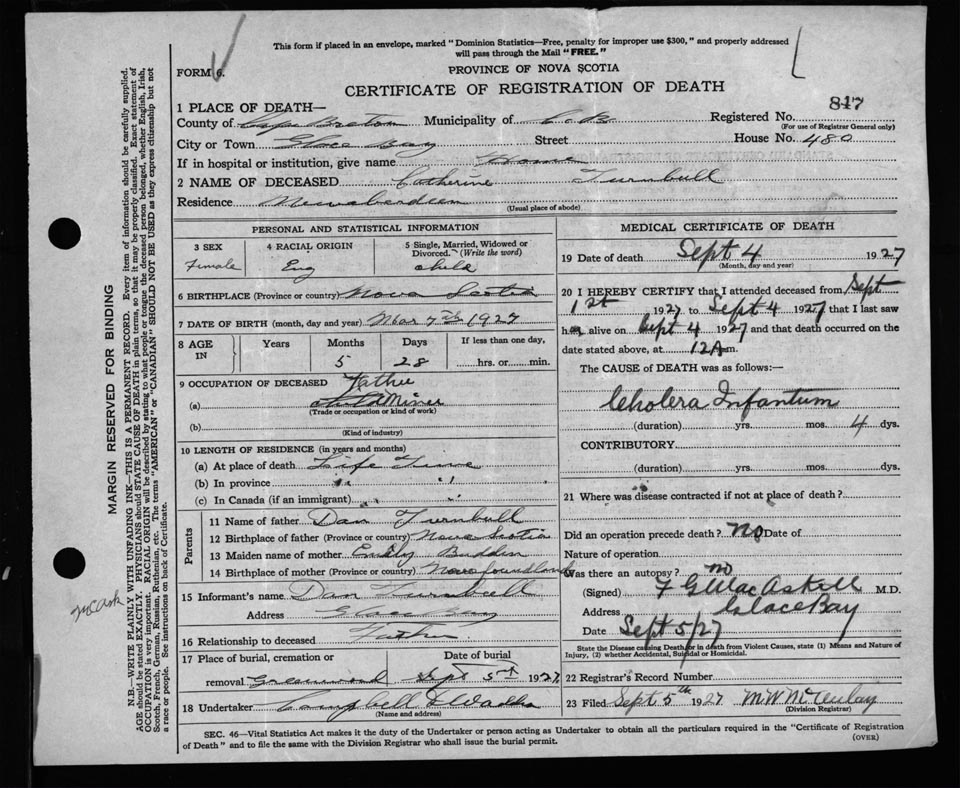 This form if placed in an envelope, marked "Dominion Statistics—Free, penalty for improper use $300," and properly addressed
will pass through the Mail "FREE."
FORM 6.
PROVINCE OF NOVA SCOTIA
CERTIFICATE OF REGISTRATION OF DEATH
1 PLACE OF DEATH—
Registered No. 817
County of Cape Breton Municipality of C. B.
(For use of Registrar General only)
City or Town Glace Bay Street House No. 480
If in hospital or institution, give name Home
2 NAME OF DECEASED Catherine Turnbull
Residence Newaberdeen
(Usual place of abode)
PERSONAL AND STATISTICAL INFORMATION
3 SEX 4 RACIAL ORIGIN 5 Single, Married, Widowed or Divorced. (Write the word)
Female Eng child
6 BIRTHPLACE (Province or country) Nova Scotia
7 DATE OF BIRTH (month, day and year) Mar 7th 1927
8 AGE IN Years Months Days If less than one day,
5 28 hrs. or min.
9 OCCUPATION OF DECEASED Father
(a) Miner
(Trade or occupation or kind of work)
(b)
(Kind of industry)
10 LENGTH OF RESIDENCE (in years and months)
(a) At place of death Life Time
(b) In province " "
(c) In Canada (if an immigrant) " "
Parents
11 Name of father Dan Turnbull
12 Birthplace of father (Province or country) Nova Scotia
13 Maiden name of mother Emily Budden
14 Birthplace of mother (Province or country) Newfoundland
15 Informant's name Dan Turnbull
Address Glace Bay
16 Relationship to deceased Father
17 Place of burial, cremation or removal Greenwood
Date of burial Sept 5 1927
18 Undertaker Campbell &
(Name and address)
MEDICAL CERTIFICATE OF DEATH
19 Date of death Sept 4 1927
(Month, day and year)
20 I HEREBY CERTIFY that I attended deceased from Sept
1st 1927 to Sept 4 1927 that I last saw
her alive on Sept 4 1927 and that death occurred on
date stated above, at 12 A m.
The CAUSE of DEATH was as follows:—
Cholera Infantum
(duration) yrs. mos. 4 dys.
CONTRIBUTORY
(duration) yrs. mos. dys.
21 Where was disease contracted if not at place of death?
Did an operation precede death? No Date of
Nature of operation
Was there an autopsy? no
(Signed) F G MacAskell M.D.
Address Glace Bay
Date Sept 5/27
State the Disease causing Death, or in death from Violent Causes, state (1) Means and Nature of
Injury, (2) whether Accidental, Suicidal or Homicidal.
22 Registrar's Record Number
23 Filed Sept 5th 1927
(Division Registrar)
SEC. 46—Vital Statistics Act makes it the duty of the Undertaker or person acting as Undertaker to obtain all the particulars required in the "Certificate of Registration
of Death" and to file the same with the Division Registrar who shall issue the burial permit.
(OVER)
MARGIN RESERVED FOR BINDING
N.B.—WRITE PLAINLY WITH UNFADING INK—THIS IS A PERMANENT RECORD. Every item of information should be carefully supplied.
AGE should be stated EXACTLY. PHYSICIANS should STATE CAUSE OF DEATH in plain terms, so that it may be properly classified. Exact statement of
OCCUPATION is very important. RACIAL ORIGIN will be described by stating to what people or tongue the deceased person belonged, whether English, Irish,
Scotch, French, German, Russian, Ruthenian, etc. The terms "AMERICAN" or "CANADIAN" SHOULD NOT BE USED as they express citizenship but not
a race or people. See instructions on back of Certificate.